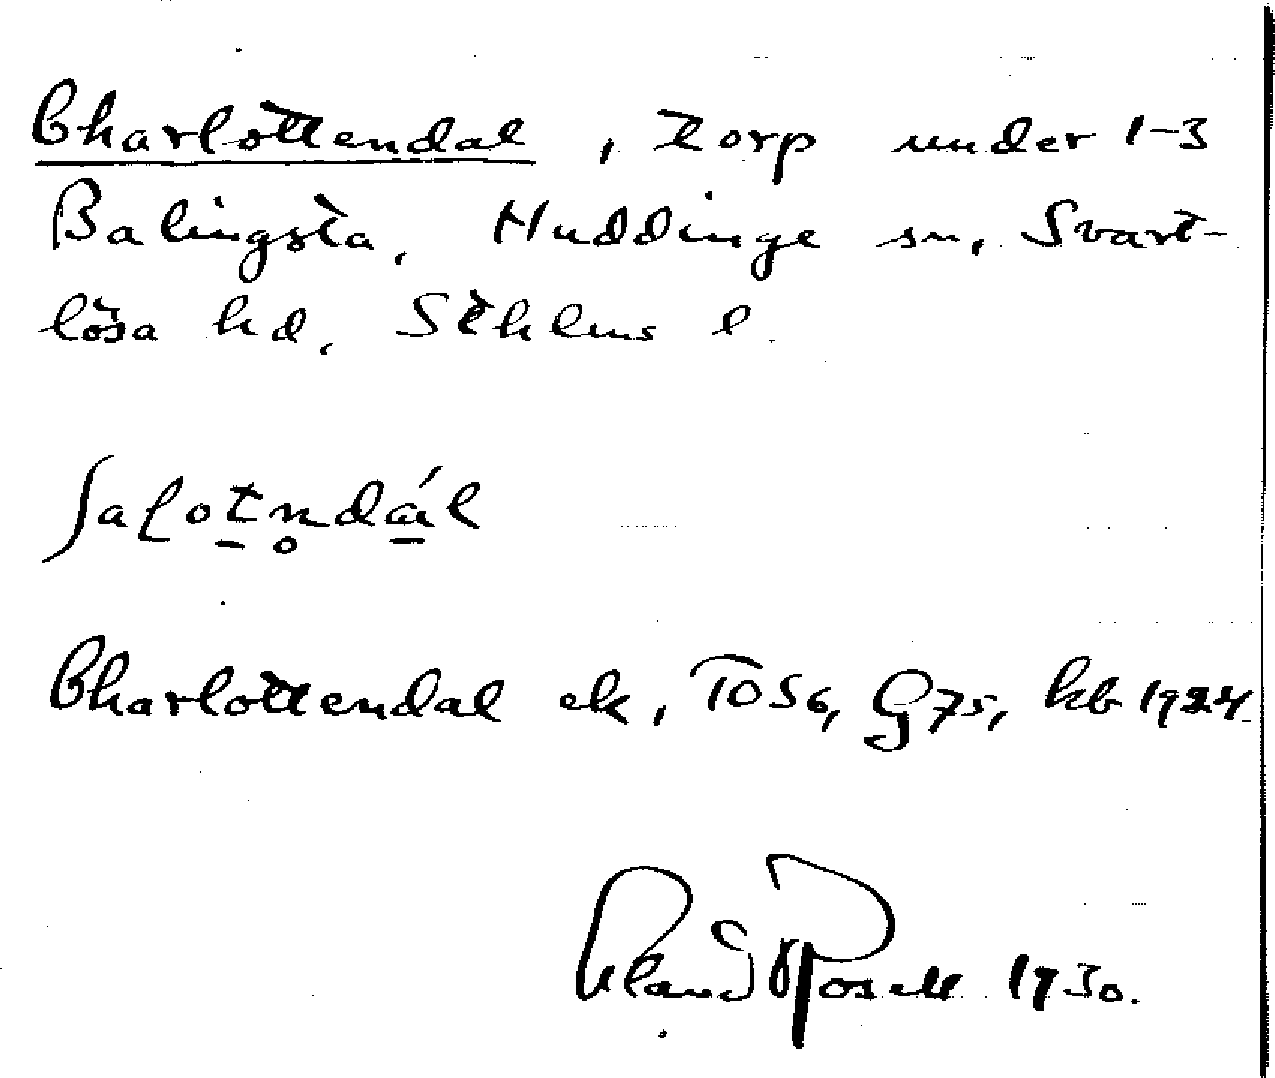 Charlottendal, torp under 1-3
Balingsta, Huddinge sn, Svart-
lösa hd, Sthlms l.
ʃaɭot̠n̥dá̠l
Charlottendal ek, TO56, G75, kb 1924.
Erland Rosell 1930.